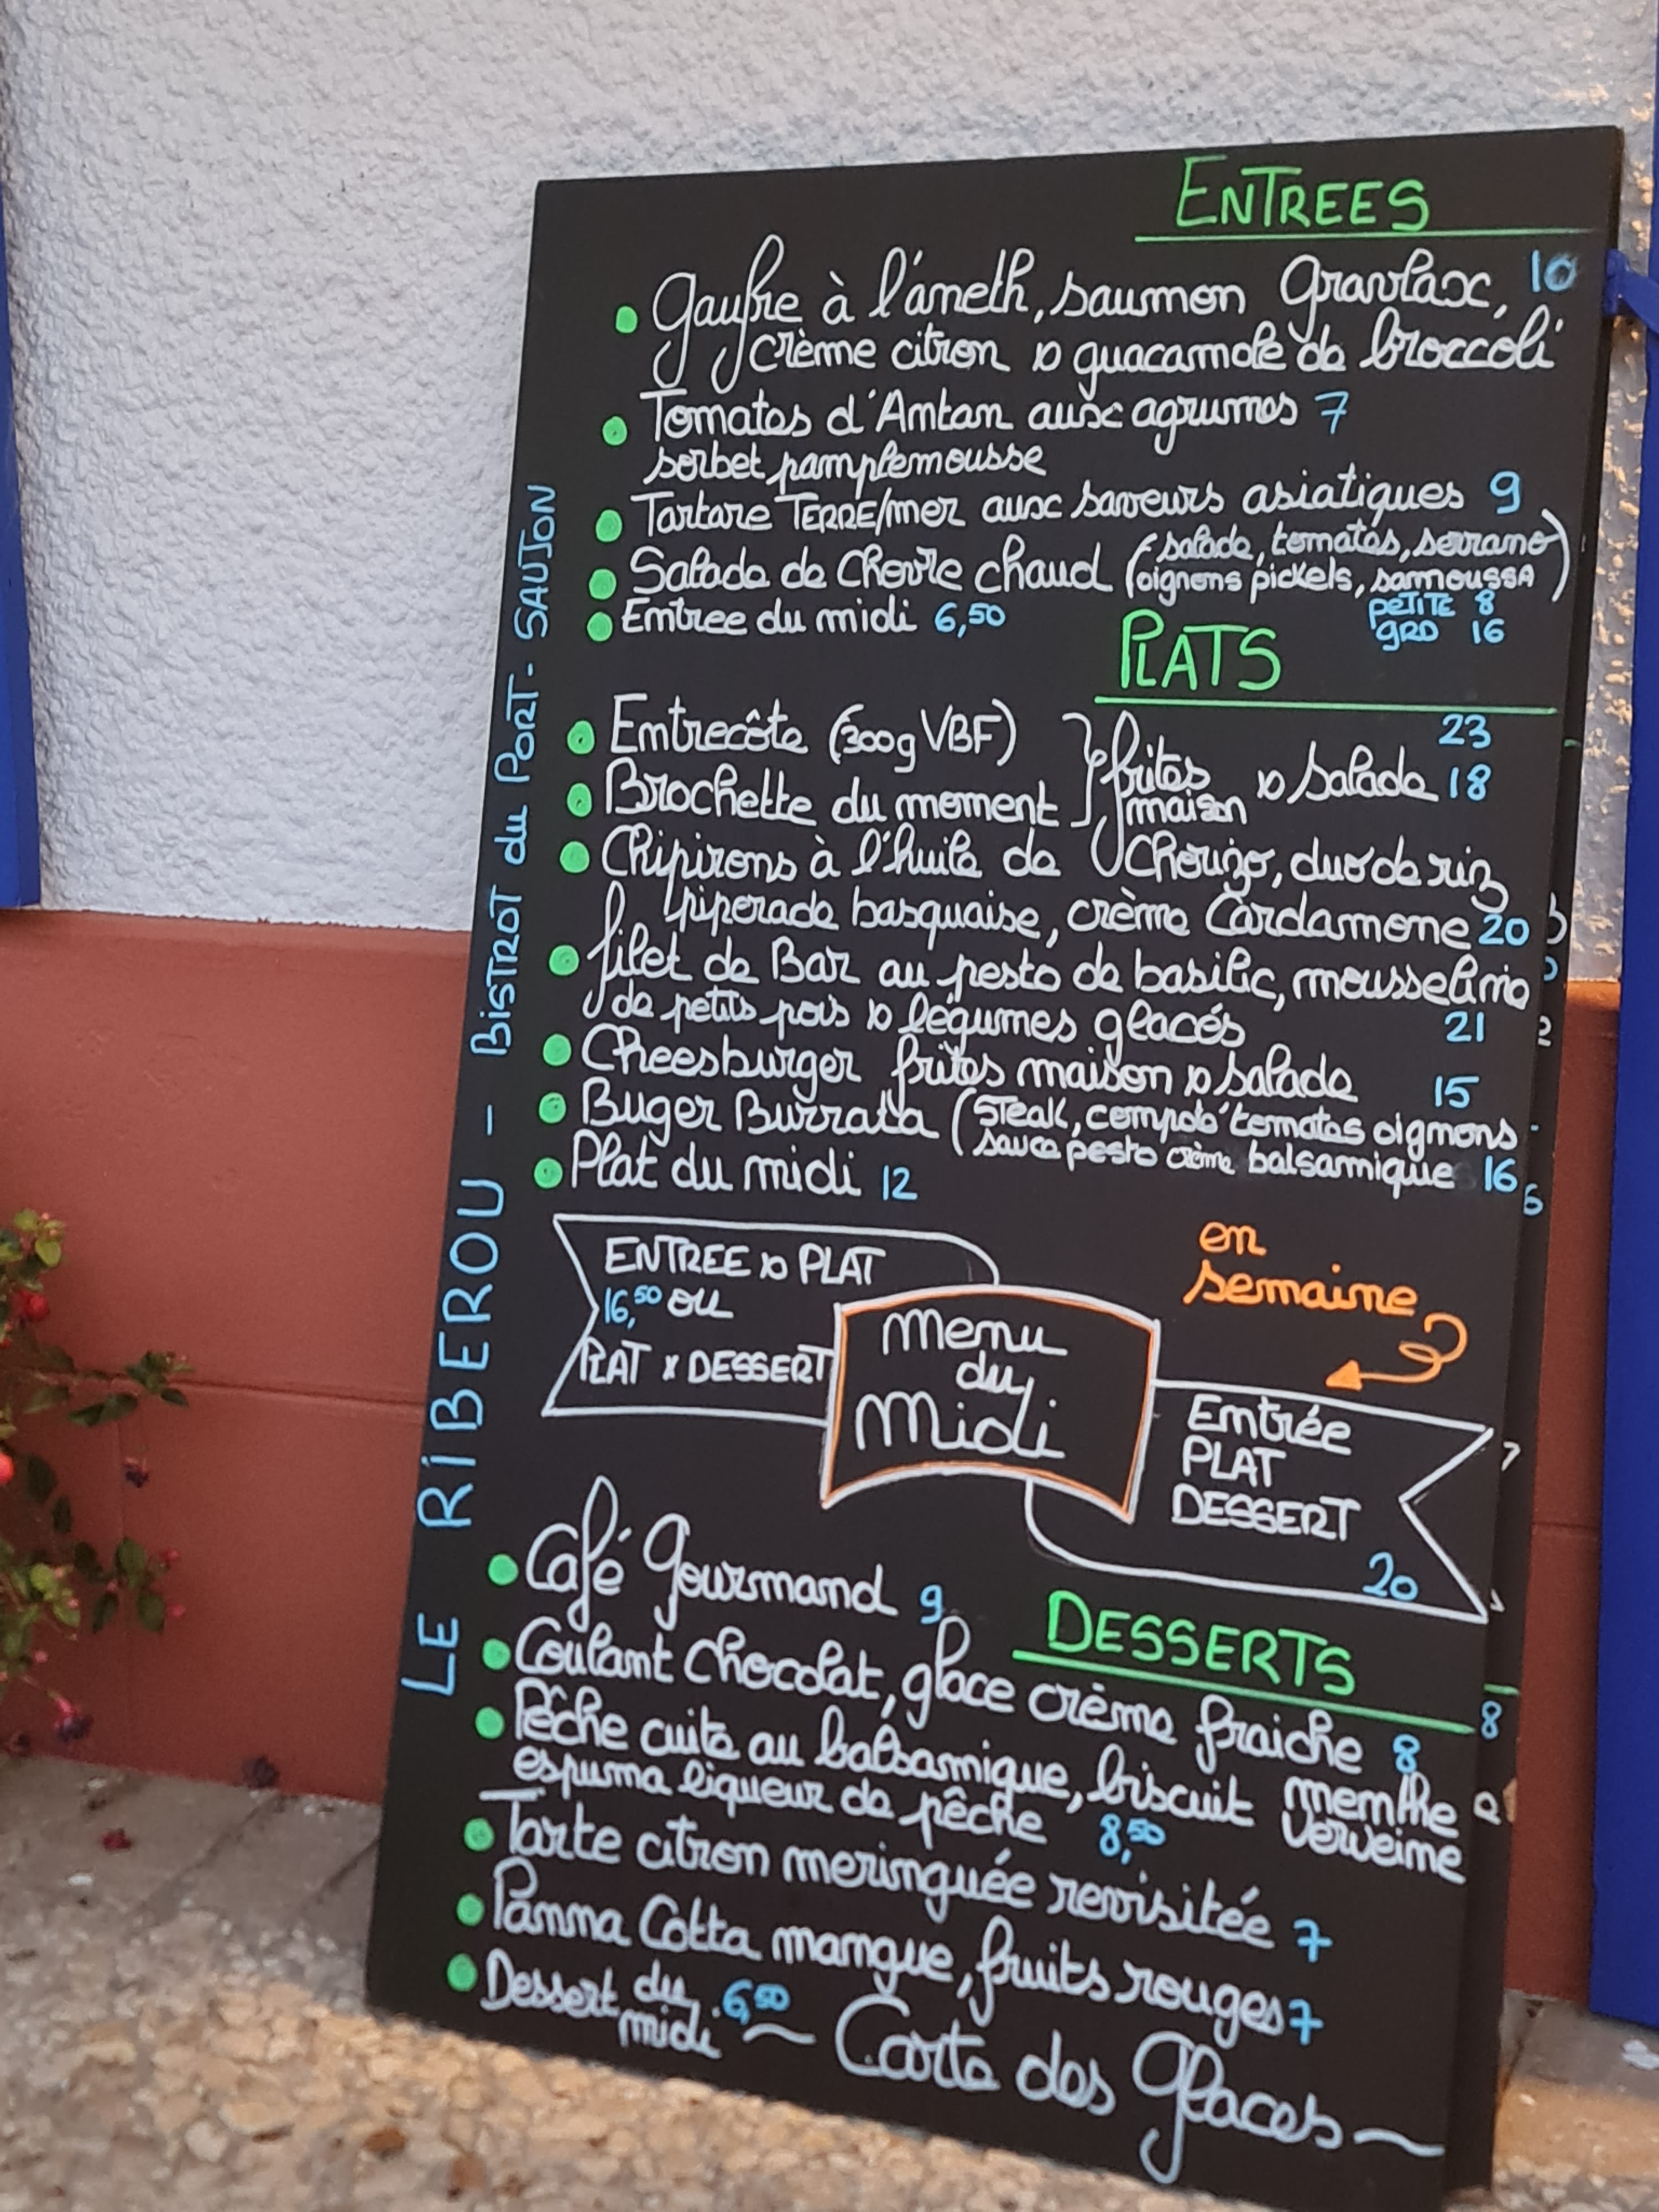 ENTREES
Gaufre à l'aneth, saumon Gravlax, 10
crème citron & guacamole de broccoli
Tomates d'Antan aux agrumes 7
sorbet pamplemousse
Tartare TERRE/mer aux saveurs asiatiques 9
Salade de Chevre chaud (salade, tomates, serrano
oignons pickels, samoussa)
PETITE 8
Entree du midi 6,50
GRD 16
PLATS
Entrecôte (300g VBF) 23
Brochette du moment } frites maison & salade 18
Chipirons à l'huile de Chorizo, duo de riz
piperade basquaise, crème Cardamone 20
filet de Bar au pesto de basilic, mousseline
de petits pois & légumes glacés 21
Cheesburger frites maison & salade 15
Buger Burrata (steak, compoté tomates oignons
sauce pesto crème balsamique 16
Plat du midi 12
en
semaine
ENTREE & PLAT
16,50 ou
PLAT x DESSERT
menu
du
Midi
Entrée
PLAT
DESSERT
20
Café Gourmand 9
DESSERTS
Coulant Chocolat, glace crème fraiche 8
Pêche cuite au balsamique, biscuit menthe
verveine
espuma liqueur de pêche 8,50
Tarte citron meringuée revisitée 7
Panna Cotta mangue, fruits rouges 7
Dessert du
midi 6,50
~ Carte des Glaces ~
LE RIBEROU - BISTROT du PORT - SAUJON